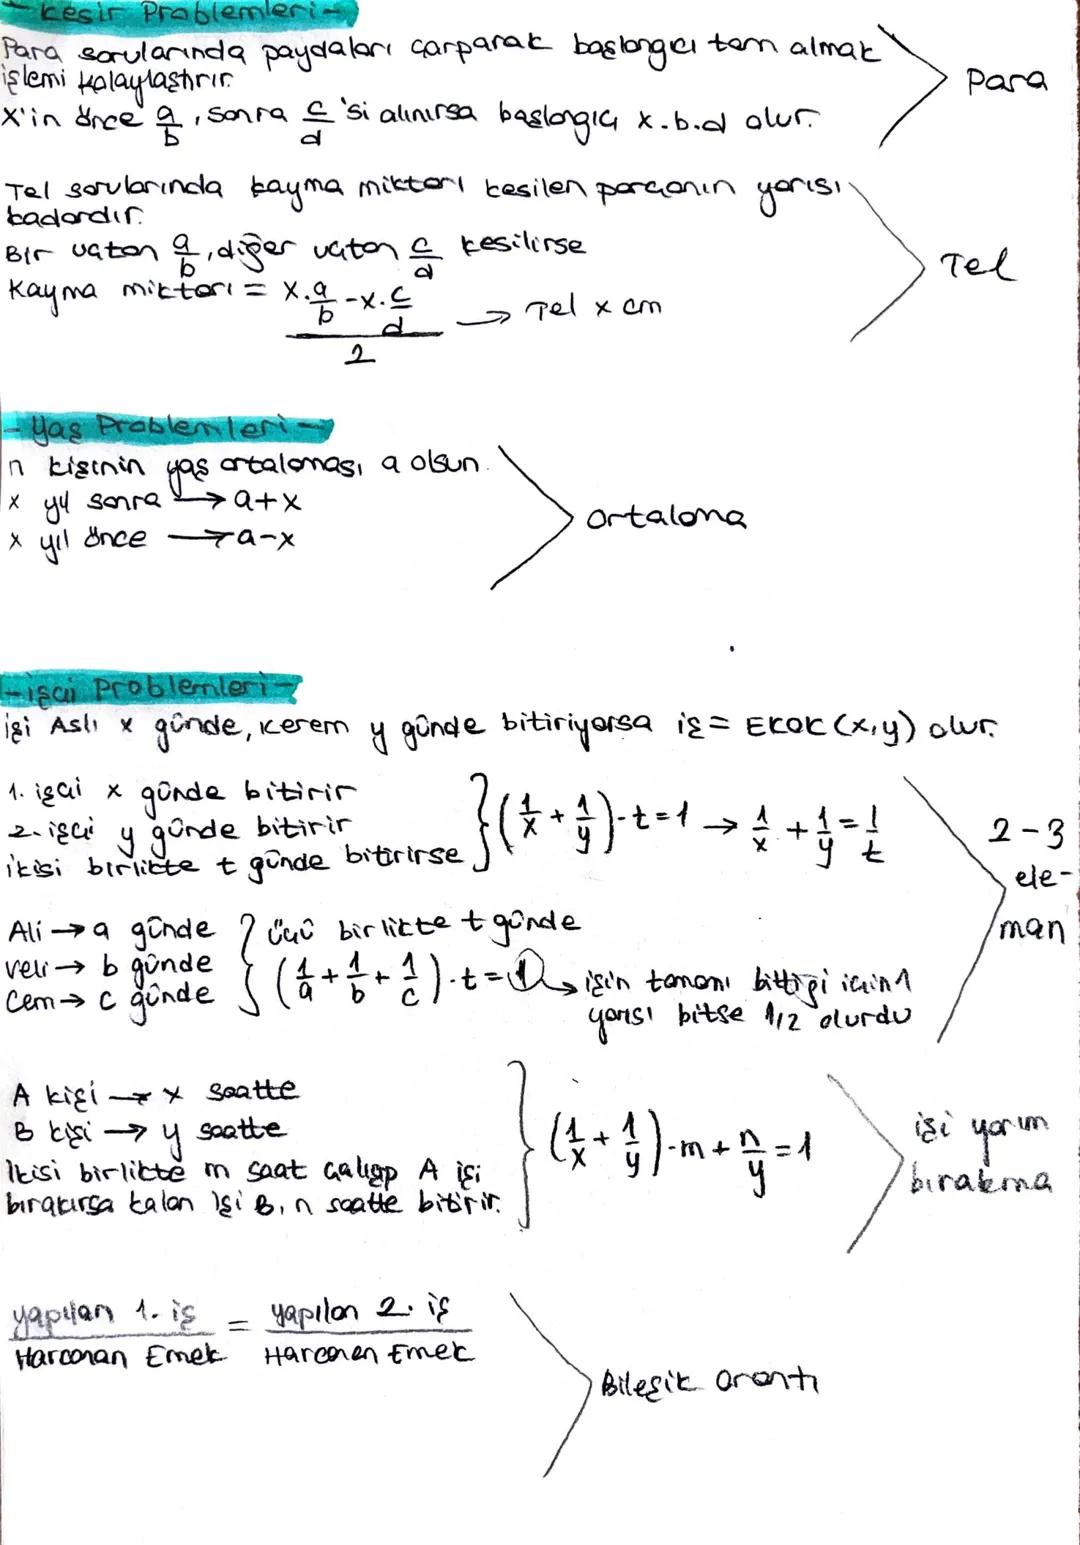 - Kesir Problemleri -
Para sorularında paydaları çarparak başlangıcı tam almak
işlemi kolaylaştırır.
X'in önce a/b, sonra c/d 'si alınırsa başlangıç x.b.d olur.
Para
Tel sorularında kayma miktarı kesilen parçanın yarısı
kadardır.
Bir uçtan a/b, diğer uçtan c/d kesilirse
Kayma miktarı = (x.a/b - x.c/d)/2 → Tel x cm
Tel
- Yaş Problemleri -
n kişinin yaş ortalaması a olsun.
x yıl sonra → a+x
x yıl önce → a-x
ortalama
- işçi Problemleri -
işi Aslı x günde, Kerem y günde bitiriyorsa iş = EKOK (x,y) olur.
1. işçi x günde bitirir
2. işçi y günde bitirir
ikisi birlikte t günde bitirirse } (1/x + 1/y).t=1 → 1/x + 1/y = 1/t
2-3
ele-
man
Ali → a günde
Veli → b günde
Cem → c günde
üçü birlikte t günde
(1/a + 1/b + 1/c).t = 1 → işin tamamı bittiği için 1
yarısı bitse 1/2 olurdu
A kişi → x saatte
B kişi → y saatte
İkisi birlikte m saat çalışıp A işi
bırakırsa kalan işi B, n saatte bitirir.
(1/x + 1/y).m + n/y = 1
işi yarım
bırakma
yapılan 1. iş/Harcanan Emek = yapılan 2. iş/Harcanan Emek
Bileşik orantı